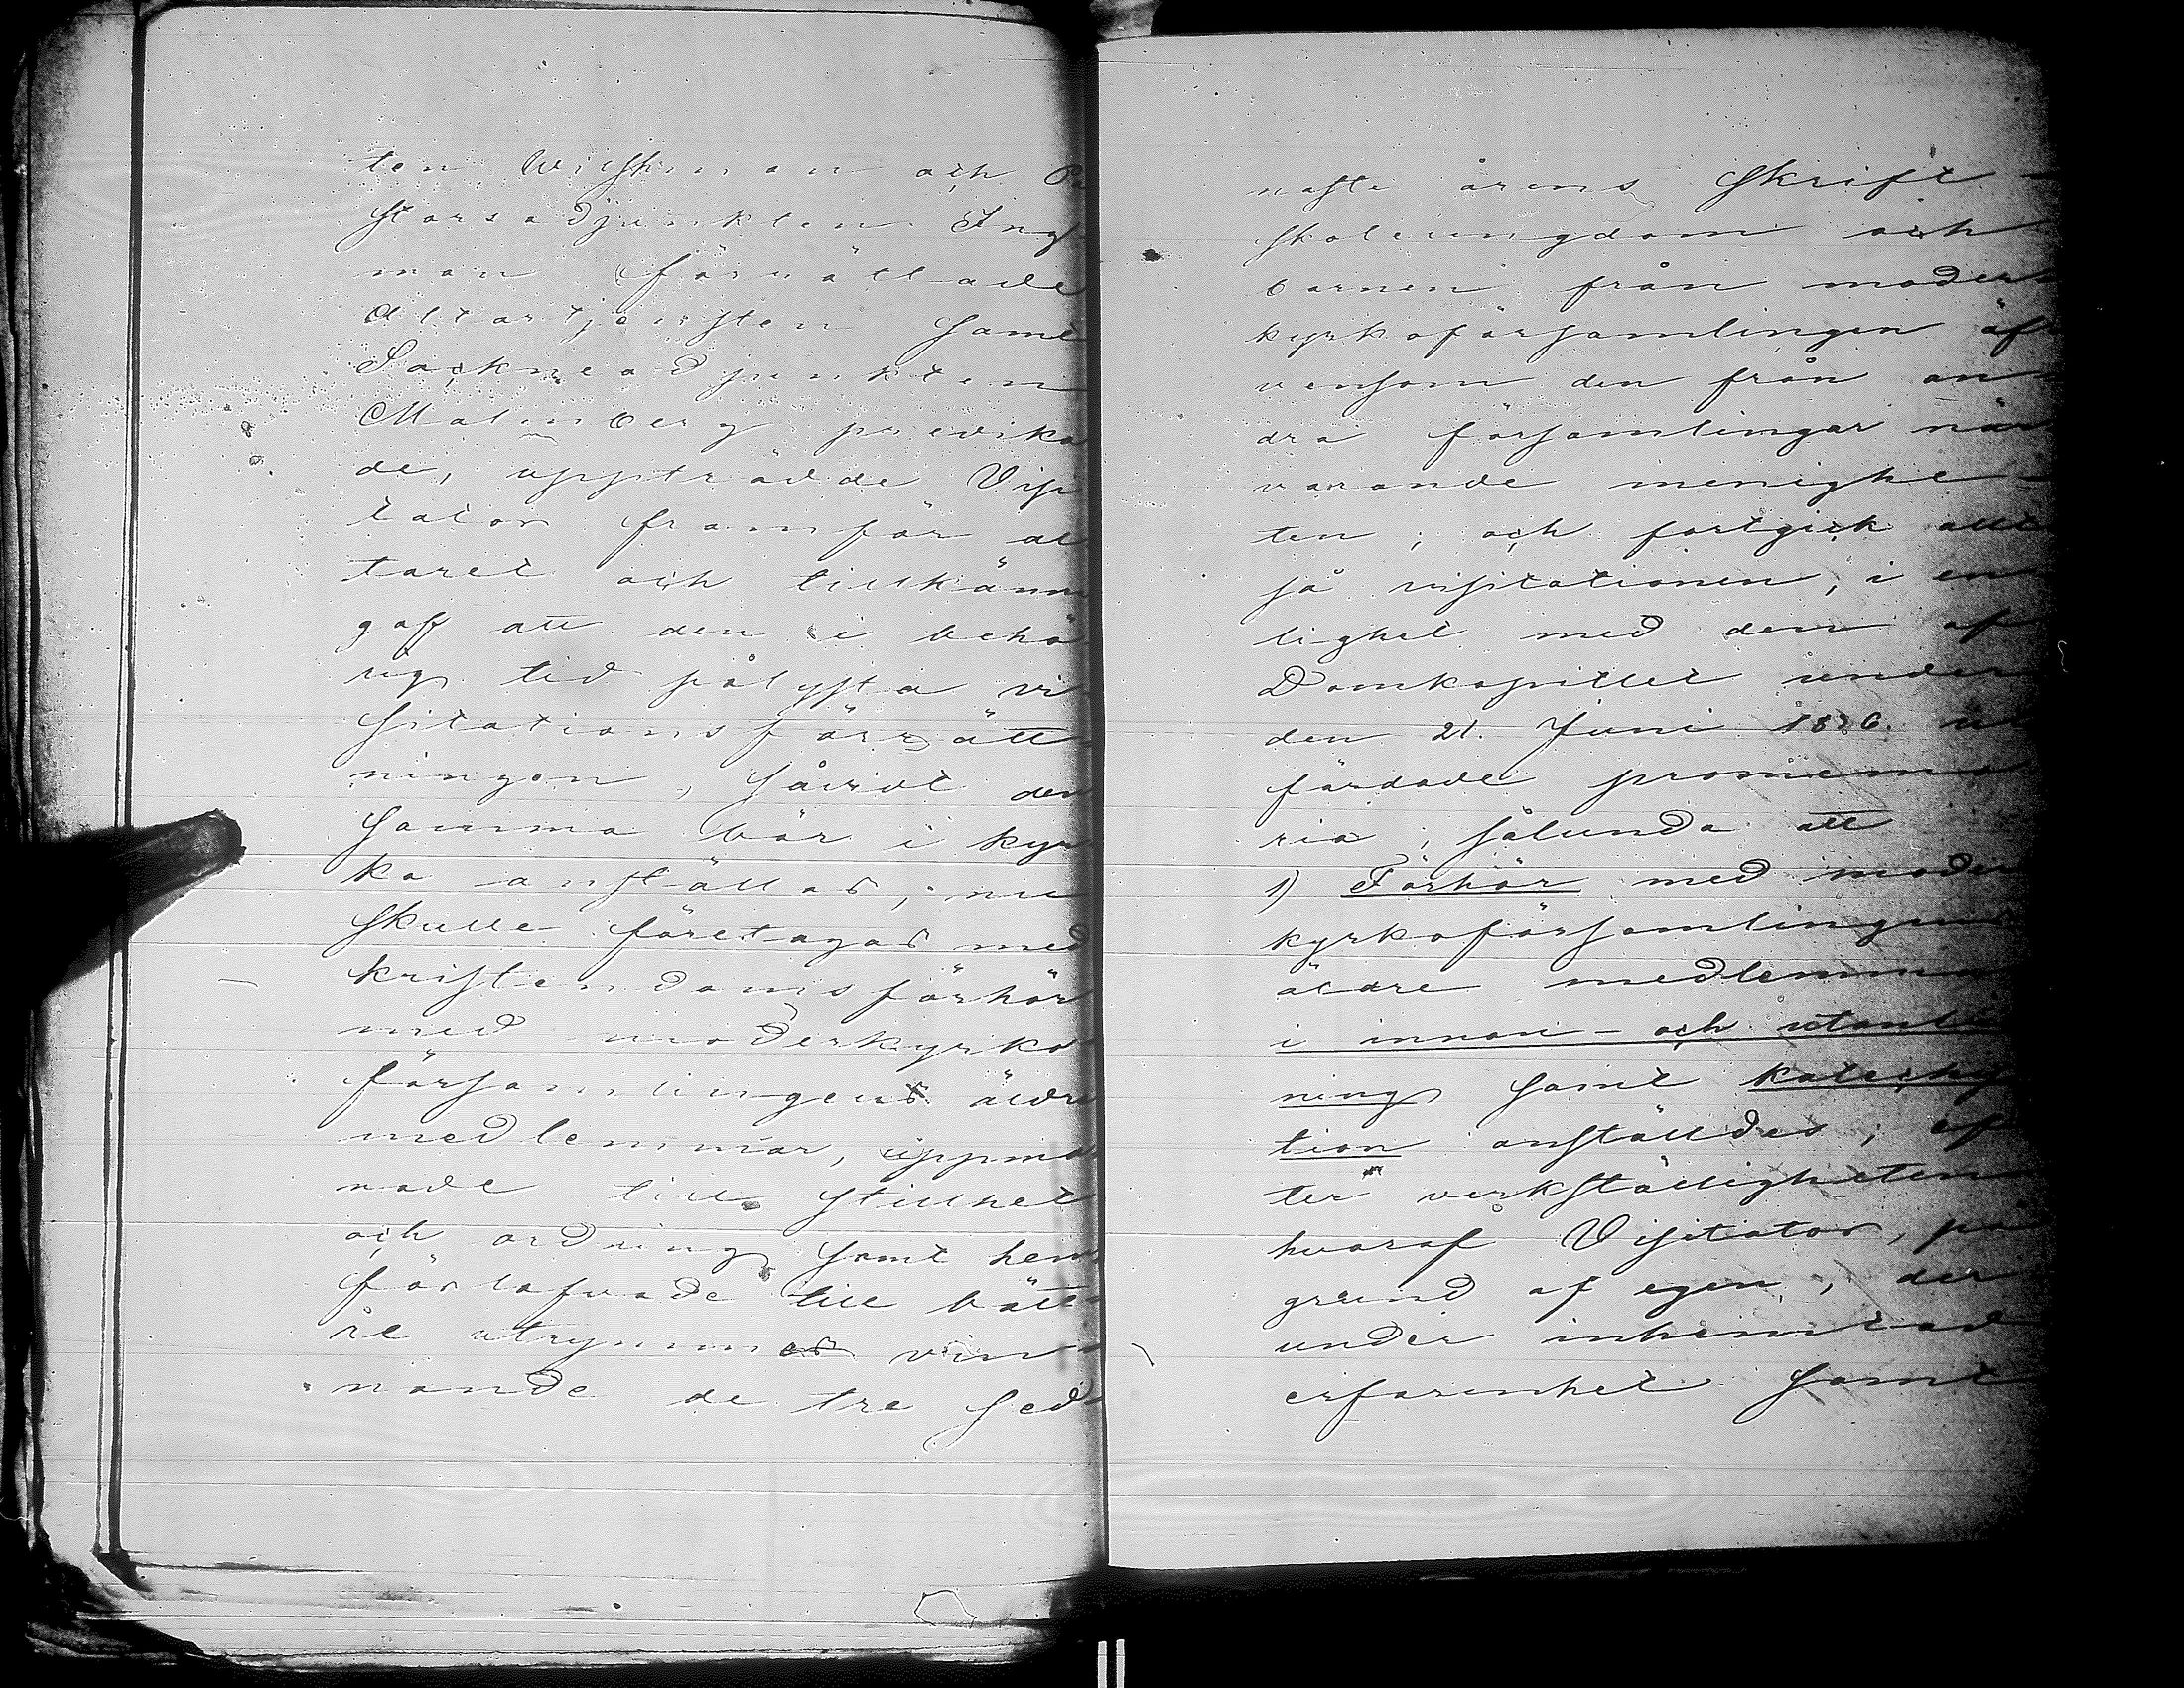 ten Wichman och Pa
storsadjunkten Ing
man förrättade
Altartjensten samt
Sockneadjunkten
Malmberg predika
de, uppträdde Visi
tator framför al
taret och tillkänna
gaf att den i behö
rig tid pålysta vi
sitationsförrätt
ningen, såvidt den
samma bör i kyr
ka anställas, nu
skulle företagas med
kristendomsförhör
med moderkyrko
församlingens äldre
medlemmar, uppma
nade till stillhet
och ordning samt hem
förlofvade till bätt
re utrymmes vin
nande de tre sed
naste årens Skrift-
skoleungdom och
barnen från moder
kyrkoförsamlingen äf
vensom den från an
dra församlingar när
varande menighe-
ten; och fortgick allt
så visitationen, i en
lighet med den af
Domkapitlet under
den 21. Juni 1876 ut
färdade promemo
ria, sålunda att
1) Förhör med moder
kyrkoförsamlingens
äldre medlemmar
i innan- och utanläs
ning samt kateche
tion anställdes; ef
ter verkställigheten
hvaraf Visitator, på
grund af egen, der
under inhemtad
erfarenhet samt